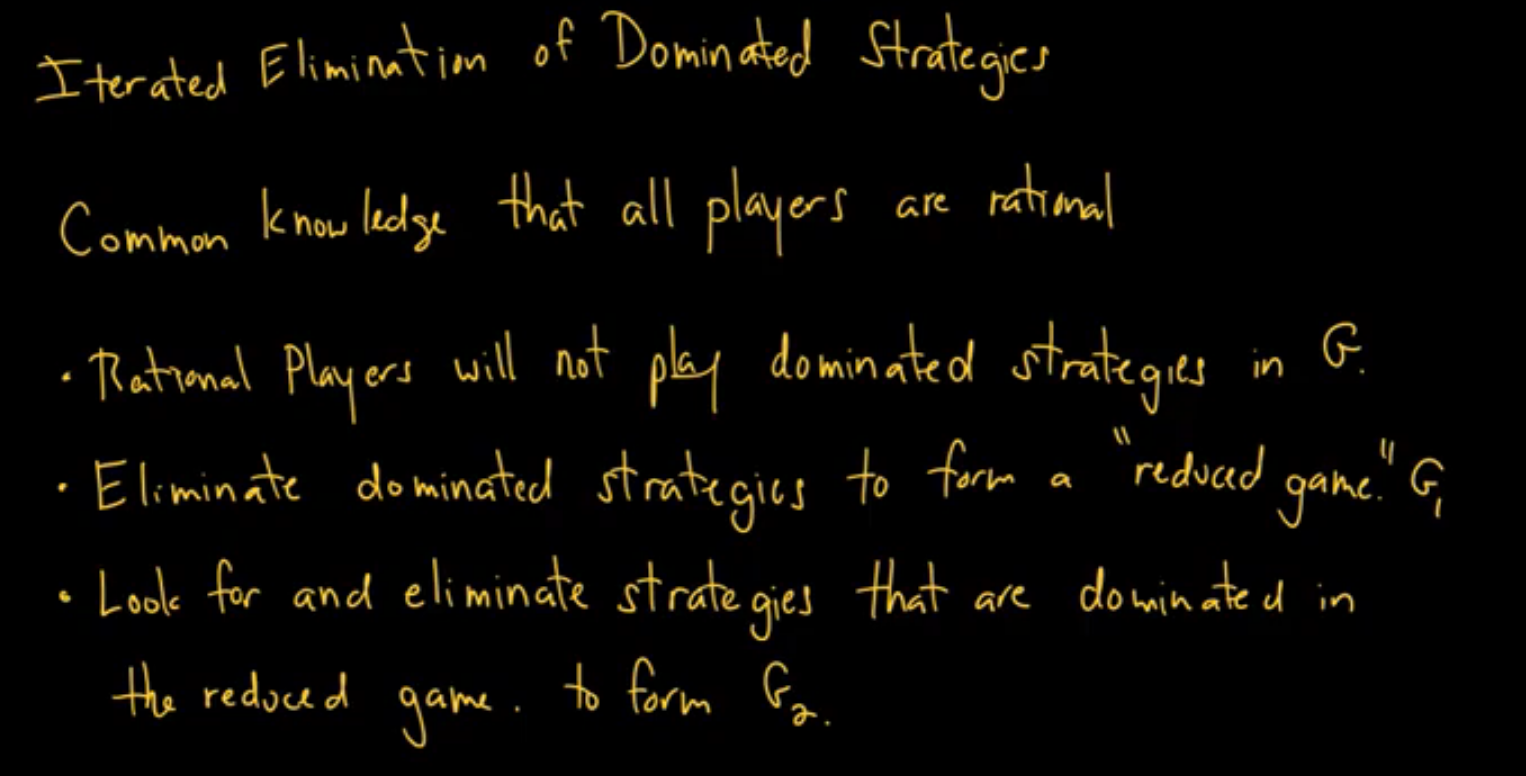 Iterated Elimination of Dominated Strategies
Common knowledge that all players are rational
• Rational Players will not play dominated strategies in G.
• Eliminate dominated strategies to form a "reduced game." G₁
• Look for and eliminate strategies that are dominated in
the reduced game. to form G₂.